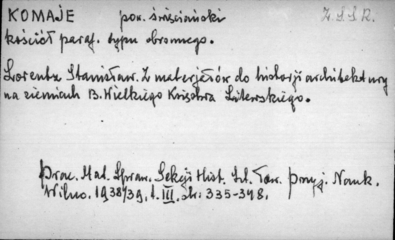 KOMAJE pow. święciański Z.S.S.R.
kościół paraf. typu obronnego.
Lorentz Stanisław. Z materjałów do historji architektury
na ziemiach B. Wielkiego Księstwa Litewskiego.
Prac. Mat. Spraw. Sekcji Hist. Szt. Tow. Przyj. Nauk.
Wilno. 1938/39, t. III. str. 335-348.